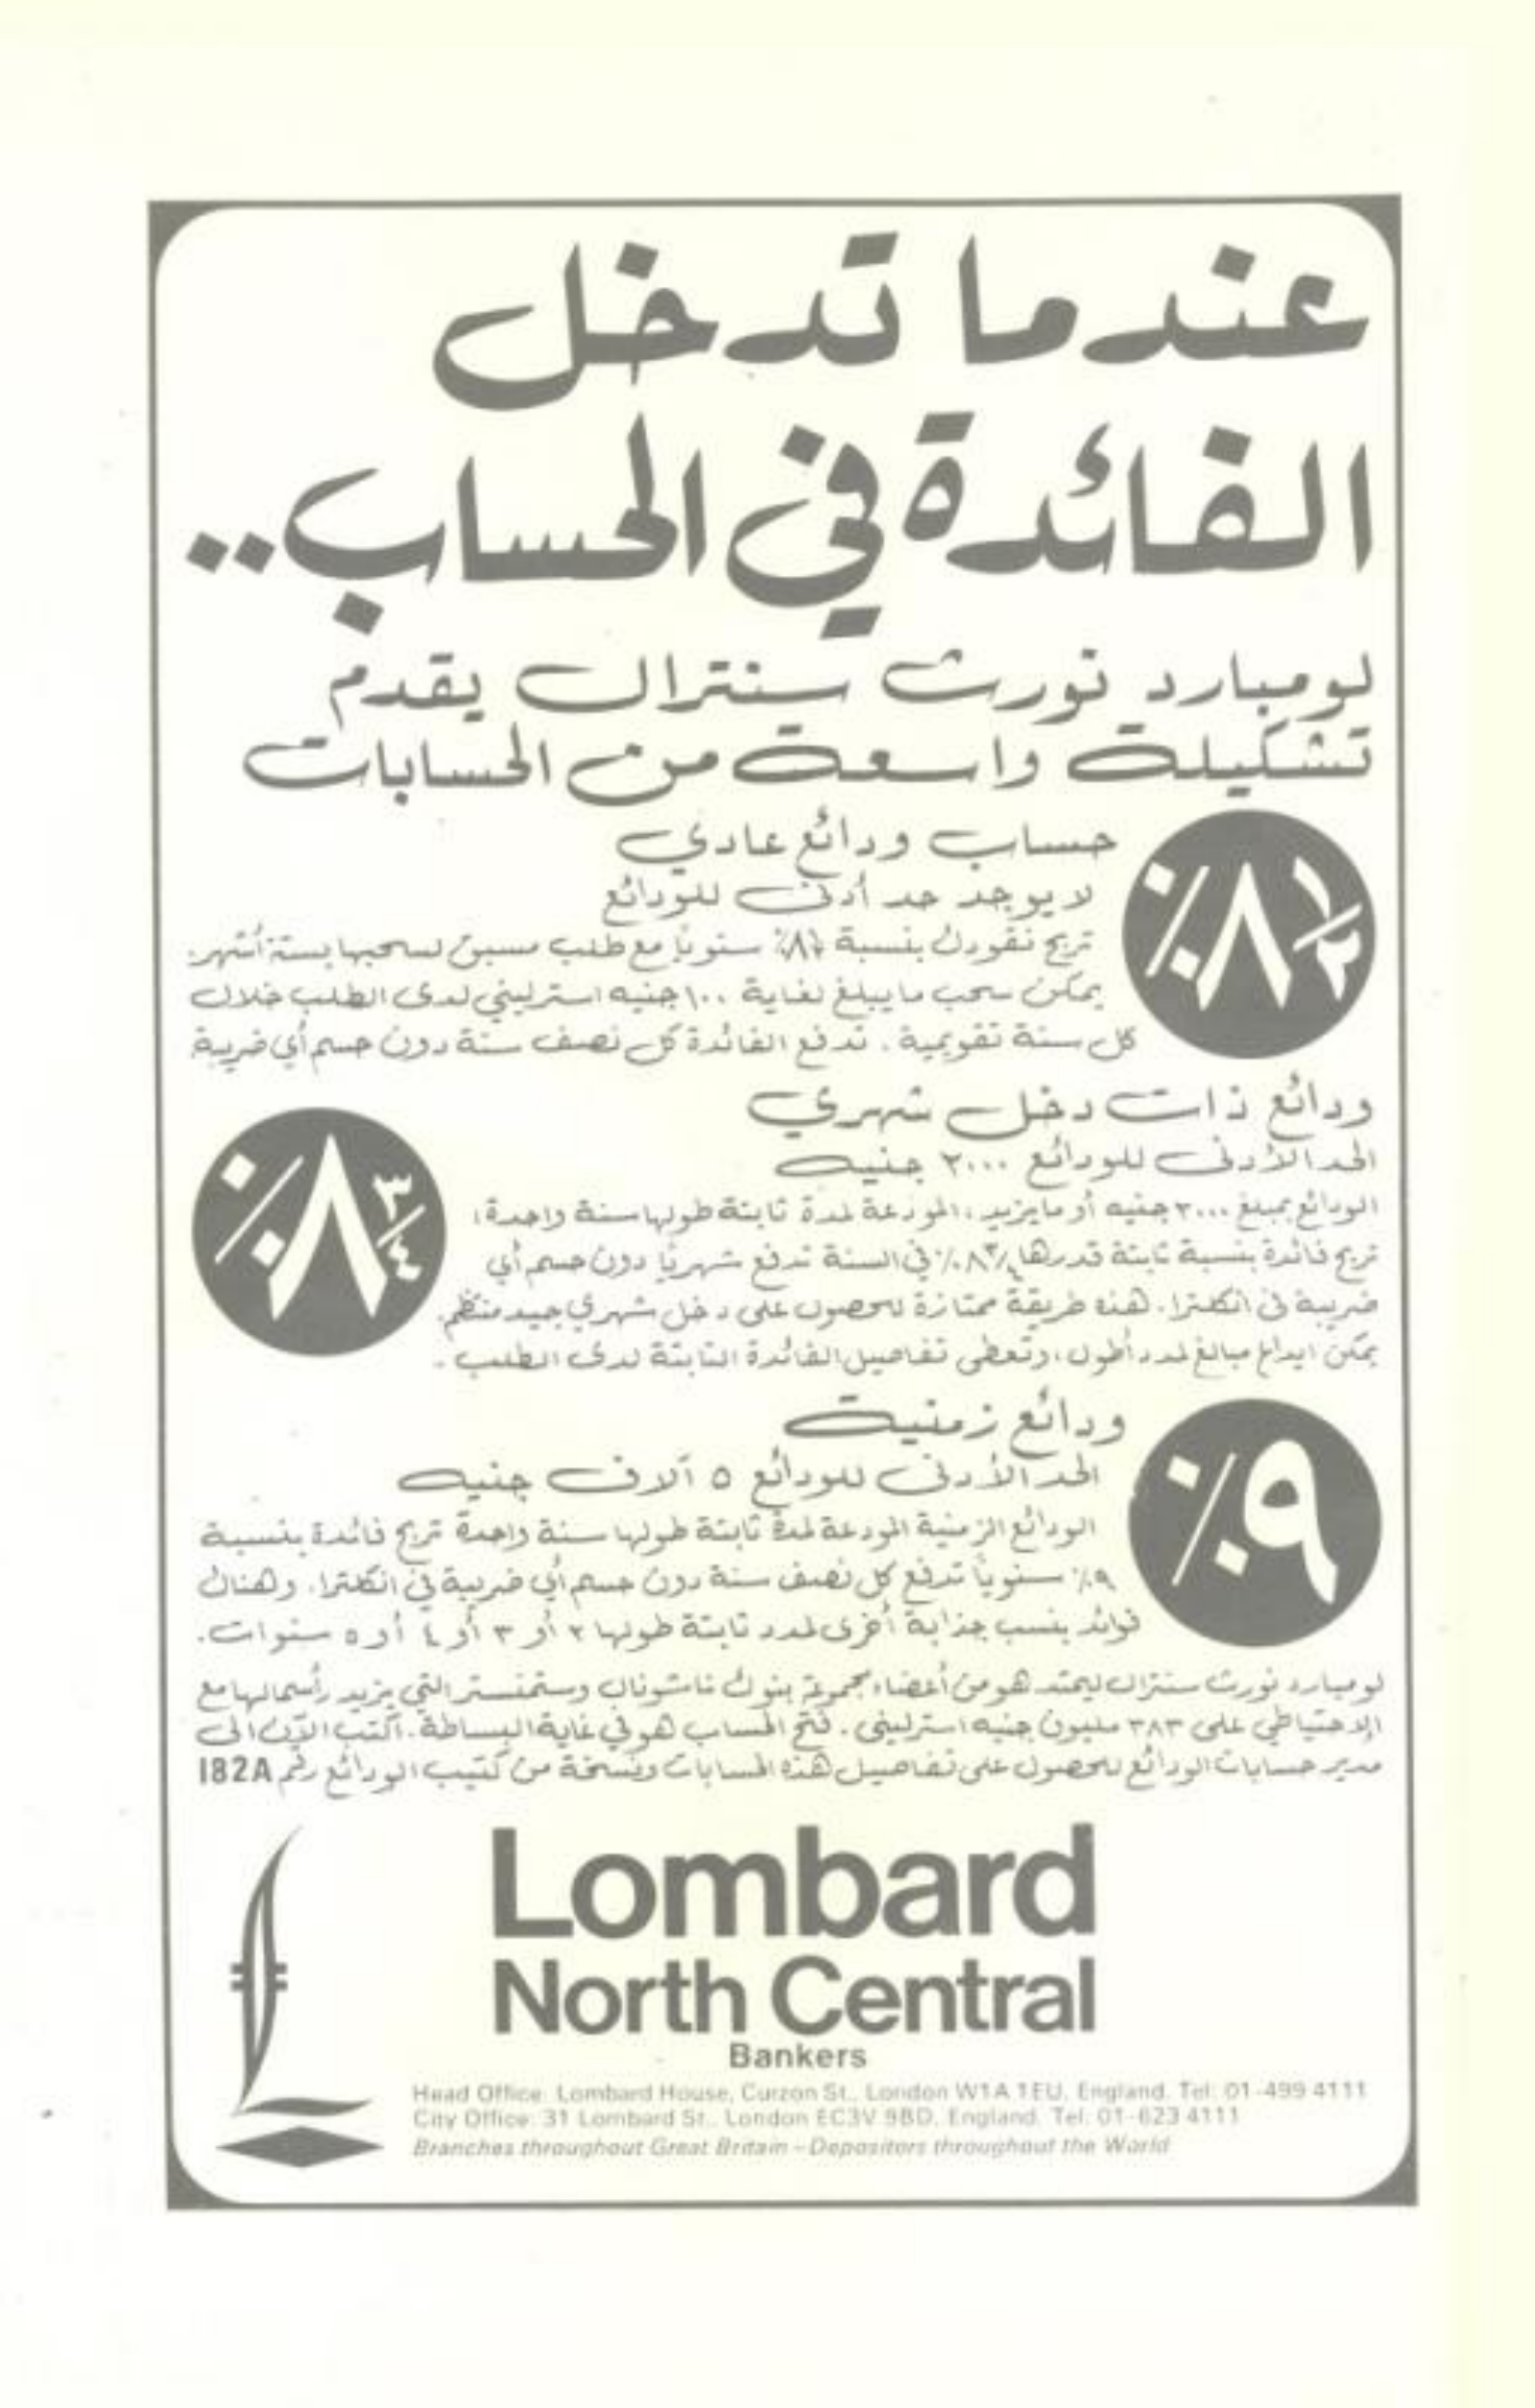 عندما تدخل
الفائدة في الحساب..
لومبارد نورث سنترال يقدم
تشكيلة واسعة من الحسابات
٨ ١/٢ ٪
حساب ودائع عادي
لا يوجد حد أدنى للودائع
تربح نقودك بنسبة ٨ ١/٢٪ سنوياً مع طلب مسبق لسحبها بستة أشهر.
يمكن سحب ما يبلغ لغاية ١٠٠ جنيه استرليني لدى الطلب خلال
كل سنة تقويمية. تدفع الفائدة كل نصف سنة دون حسم أي ضريبة
ودائع ذات دخل شهري
الحد الأدنى للودائع ٢٠٠٠ جنيه
٨ ٣/٤ ٪
الودائع بمبلغ ٢٠٠٠ جنيه أو مايزيد، المودعة لمدة ثابتة طولها سنة واحدة،
تربح فائدة بنسبة ثابتة قدرها ٨ ٣/٤٪ في السنة تدفع شهرياً دون حسم أي
ضريبة في انكلترا. هذه طريقة ممتازة للحصول على دخل شهري جيد منتظم.
يمكن ايداع مبالغ لمدد أطول، وتعطى تفاصيل الفائدة الثابتة لدى الطلب.
٩٪
ودائع زمنية
الحد الأدنى للودائع ٥ آلاف جنيه
الودائع الزمنية المودعة لمدة ثابتة طولها سنة واحدة تربح فائدة بنسبة
٩٪ سنوياً تدفع كل نصف سنة دون حسم أي ضريبة في انكلترا. وهناك
فوائد بنسب جذابة أخرى لمدد ثابتة طولها ٢ أو ٣ أو ٤ أو ٥ سنوات.
لومبارد نورث سنترال ليمتد هو من أعضاء مجموعة بنوك ناشونال وستمنستر التي يزيد رأسمالها مع
الاحتياطي على ٣٨٣ مليون جنيه استرليني. فتح الحساب هو في غاية البساطة. اكتب الآن الى
مدير حسابات الودائع للحصول على تفاصيل هذه الحسابات ونسخة من كتيب الودائع رقم 182A
Lombard
North Central
Bankers
Head Office: Lombard House, Curzon St., London W1A 1EU, England. Tel: 01-499 4111
City Office: 31 Lombard St., London EC3V 9BD, England. Tel: 01-623 4111
Branches throughout Great Britain – Depositors throughout the World